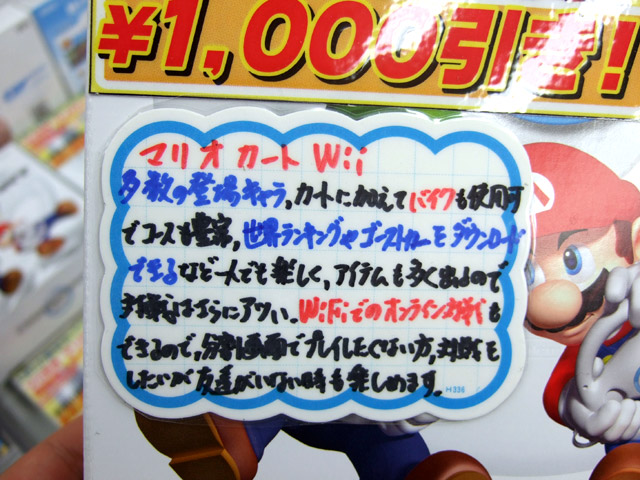 ¥1,000引き!
マリオカート Wii
多数の登場キャラ,カートに加えてバイクも使用可
でコースも豊富,世界ランキングやゴーストカーもダウンロード
できるなど一人でも楽しく,アイテムも多く出るので
対戦はさらにアツい.WiFiでのオンライン対戦も
できるので,分割画面でプレイしたくない方,対戦を
したいが友達がいない時も楽しめます.
H336